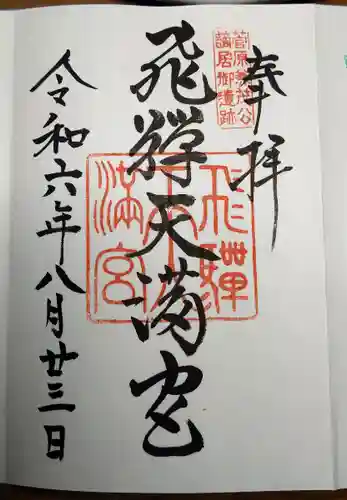 奉拝
菅原兼茂公
謫居御遺跡
飛騨天満宮
飛騨
天
満宮
令和六年八月廿三日